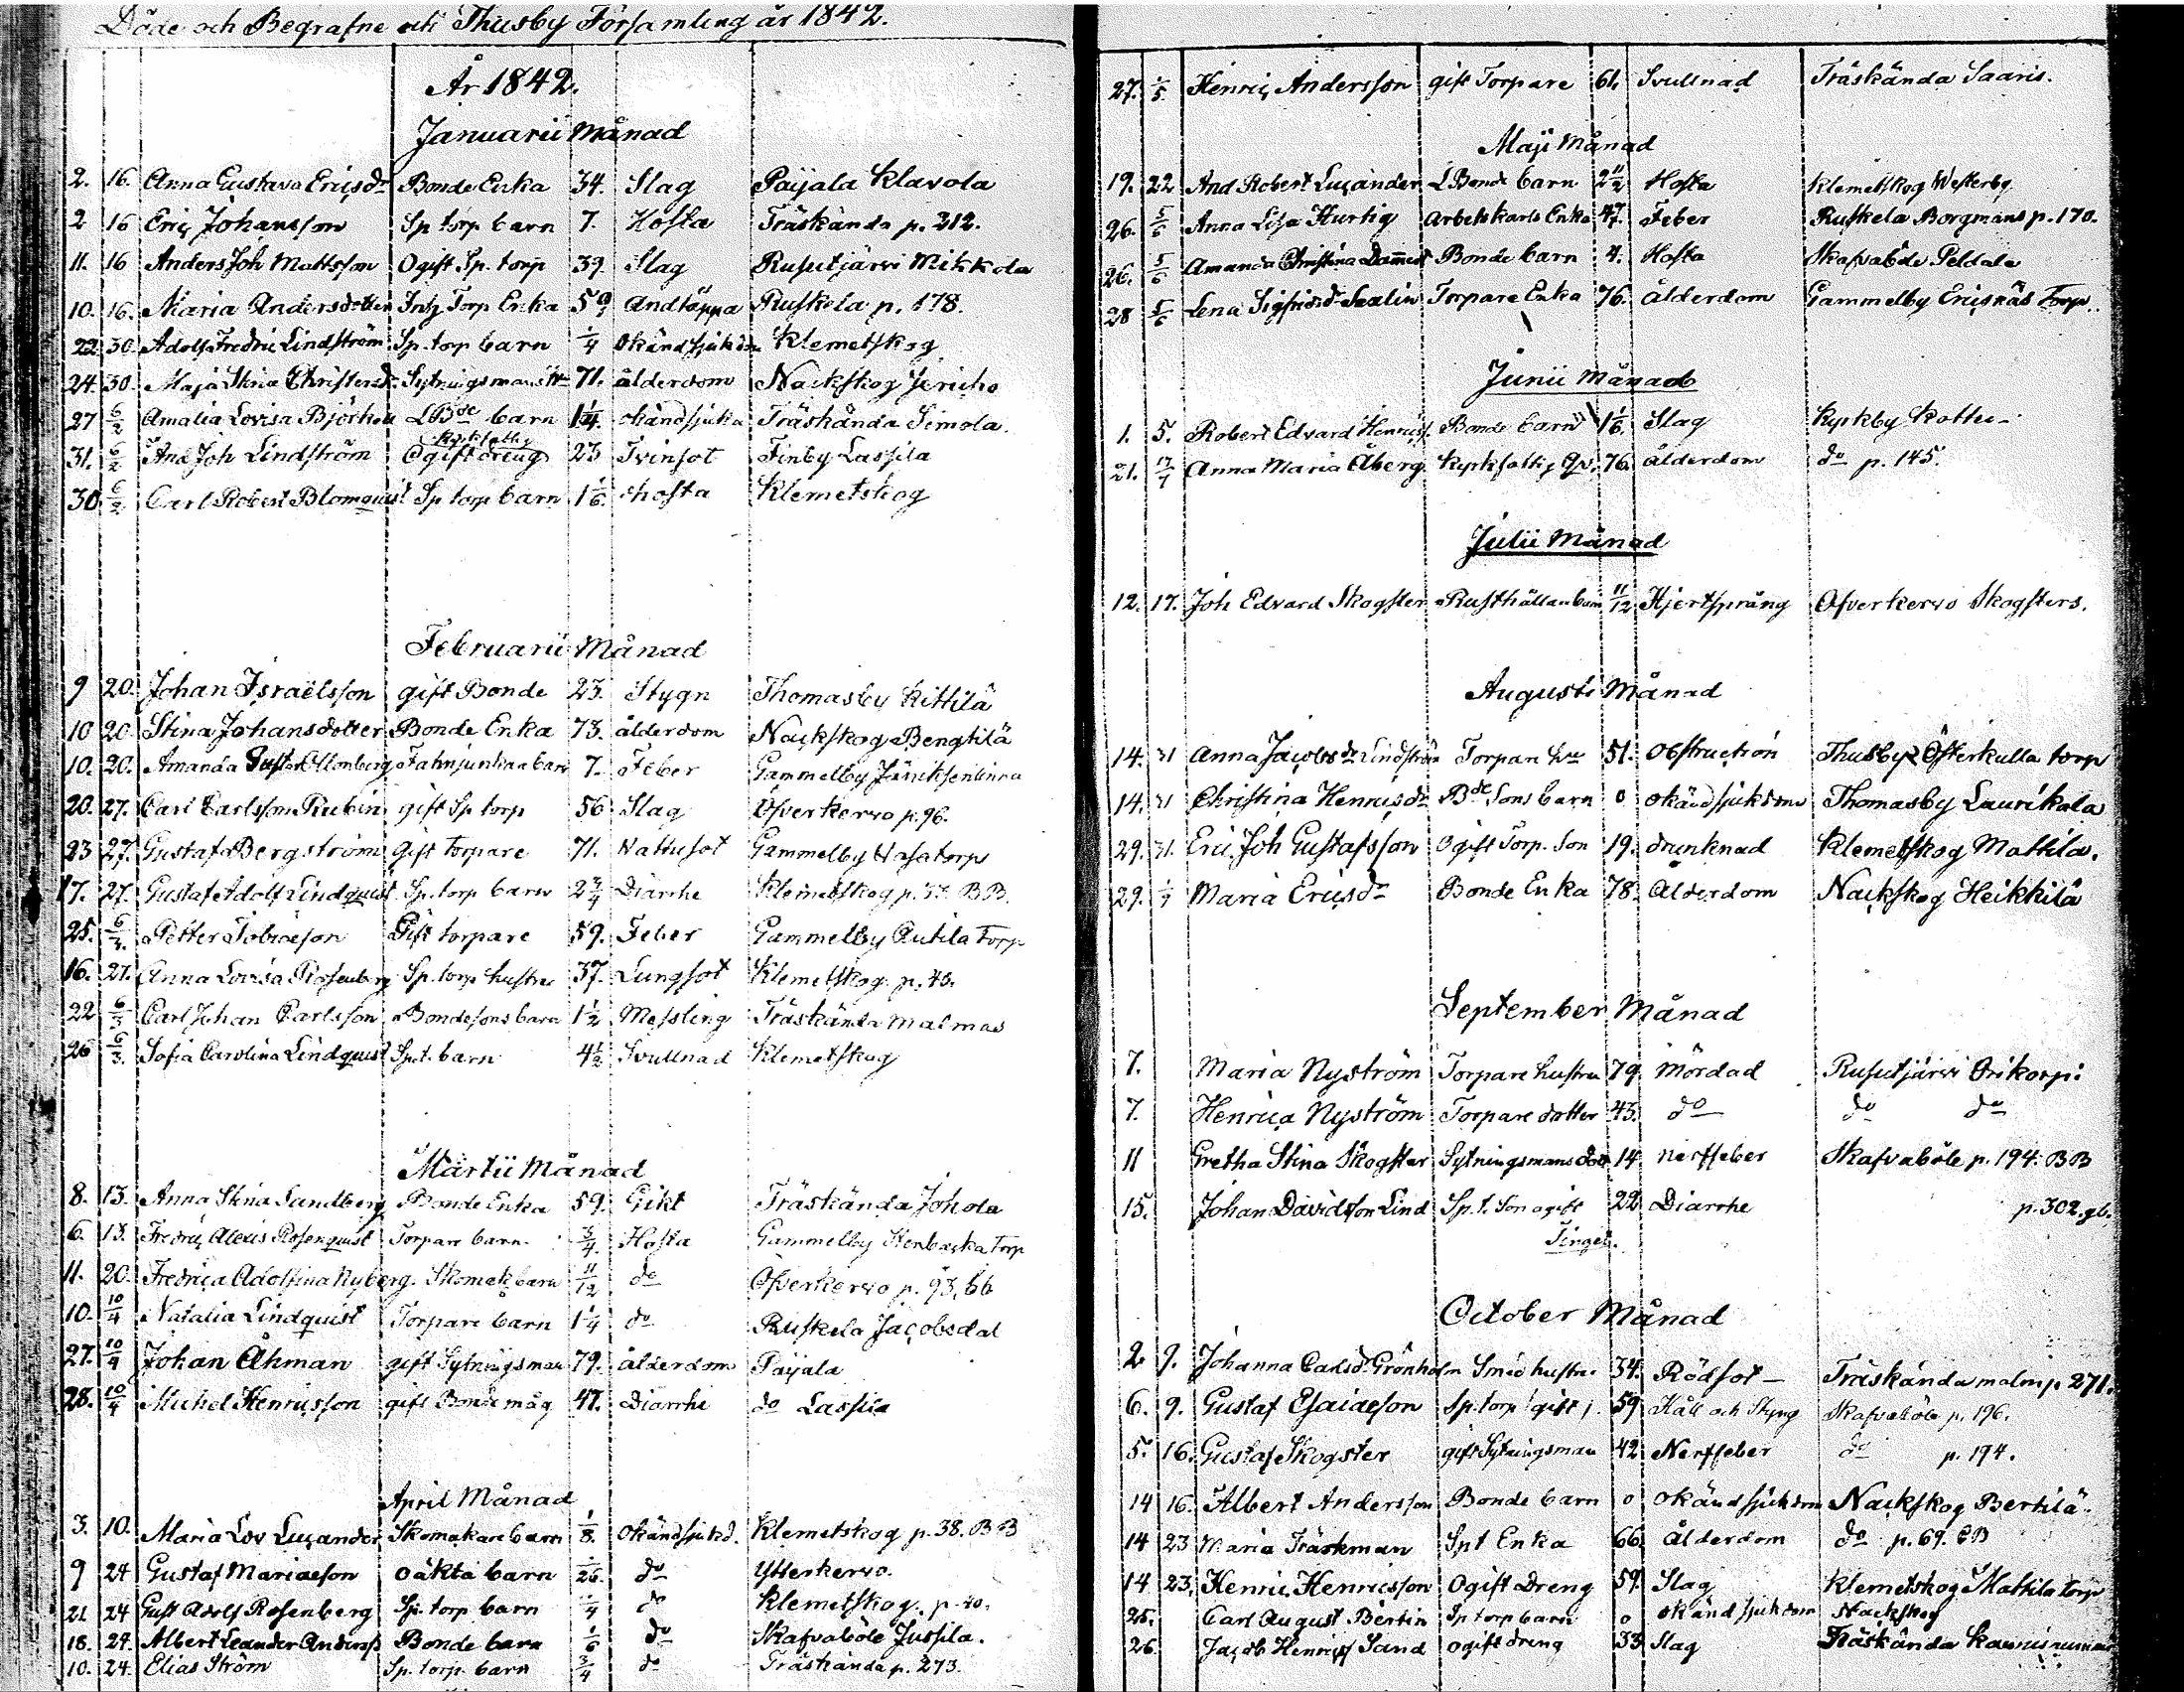 Döde och Begrafne uti Thusby Församling år 1842.
År 1842.
Januarii Månad
2. 16. Anna Gustava Ericsdr Bonde Enka 34. Slag Paijala Klavola
2 16 Eric Johansson Sp torp barn 7. Hosta Träskända p. 212.
11. 16 Anders Joh Mattsson Ogift Sp. torp 39. Slag Rusutjärvi Mikkola
10. 16. Maria Andersdotter Torp Enka 59 Andtäppa Ruskela p. 178.
22 30. Adolf Fredric Lindström Sp. torp barn 1/4 Okänd sjukdom Klemetskog
24. 30. Maja Stina Christersdr Sytningsmans 71. ålderdom Nackskog Jericho
27 6/2 Amalia Lovisa Björkell LBde barn 1 1/4 okänd sjuka Träskända Simola
31. 6/2 And Joh Lindström Ogift dreng 23 Tvinsot Finby Lassila
30 6/2 Carl Robert Blomquist Sp torp barn 1 1/6 hosta Klemetskog
Februarii Månad
9 20. Johan Israëlsson gift Bonde 23. Stygn Thomasby Kittilä
10 20. Stina Johansdotter Bonde Enka 73. ålderdom Nackskog Bengtilä
10. 20. Amanda Gust. Ollonberg Fahnjunkara barn 7. Feber Gammelby
20. 27. Carl Carlsson Rubin gift Sp torp 56 Slag Öfverkervo p. 96.
23 27. Gustaf Bergström gift torpare 71. Vattusot Gammelby torp
17. 27. Gustaf Adolf Lindquist Sp. torp barn 2 3/4 Diarrhe Klemetskog p. BB.
25. 6/3. Petter Tobiaeson Gift torpare 59. Feber Gammelby Autila Torp
16. 27. Anna Lovisa Rosenberg Sp. torp hustru 37. Lungsot Klemetskog p. 40.
22 6/3 Carl Johan Carlsson Bondesons barn 1 1/2 Messling Träskända Malmas
26 6/3. Sofia Carolina Lindquist Sp.t. barn 4 1/2 Svullnad Klemetskog
Martii Månad
8. 13. Anna Stina Sundberg Bonde Enka 59. Gikt Träskända Johola
6. 13. Fredric Alexis Rosenquist Torpare barn 3/4. Hosta Gammelby Stenbacka Torp
11. 20. Fredrica Adolfina Nyberg. Skomak barn 11/12 do Öfverkervo p. 93, bb
10. 10/4 Natalia Lindquist Torpare barn 1 1/4 do Ruskela Jacobsdal
27. 10/4 Johan Åhman gift Sytningsman 79. ålderdom Paijala
28. 10/4 Michel Henricsson gift Bonde måg 47. Diarrhe do Lassila
April Månad
3. 10. Maria Lov Lucander Skomakare barn 1/8. okänd sjukd. Klemetskog p. 38. BB
9 24 Gustaf Mariaeson oäkta barn 1/26. do Ytterkervo.
21 24 Gust Adolf Rosenberg Sp. torp barn 1/4 do Klemetskog. p. 40.
18. 24. Albert Leander Anderss Bonde barn 1/6 do Skafvaböle Jussila.
10. 24. Elias Ström Sp. torp. barn 3/4 do Träskända p. 273.
27. 1/5 Henric Andersson gift Torpare 61. Svullnad Träskända Saaris.
Maji Månad
19. 22 And Robert Lucander L Bonde barn 2 11/12 Hosta Klemetskog Westerby
26. 5/6 Anna Lisa Hurtig arbetskarls Enka 47. Feber Ruskela Borgmans p. 170.
26. 5/6 Amanda Christina Bonde barn 4. Hosta Skafvaböle Peldala
28 5/6 Lena Sigfridsdr Saxlin Torpare Enka 76. ålderdom Gammelby Ericsnäs Torp.
Junii Månad
1. 5. Robert Edvard Henricss. Bonde barn 1 1/6. Slag Kyrkby Kothe
21. 17/7 Anna Maria Åberg Kyrkfattig 76. ålderdom do p. 145.
Julii Månad
12. 17. Joh Edvard Skogster Rusthållar barn 11/12 Hjertsprång Öfverkervo Skogsters.
Augusti Månad
14. 31 Anna Jacobsdr Lindström Torpare hu 51. Obstruction Thusby Österkulla torp
14. 31 Christina Henricsdr Bde Sons barn 0 okänd sjukdom Thomasby Laurikala
29. 31. Eric Joh Gustafsson Ogift Torp. Son 19. drunknad Klemetskog Mattila.
29. Maria Ericsdr Bonde Enka 78. Ålderdom Nackskog Heikkilä
September Månad
7. Maria Nyström Torpare hustru 79. Mördad Rusutjärvi Orikorpi
7. Henrica Nyström Torpare dotter 43. do do do
11 Gretha Stina Skogster Sytningsmans dotr 14 nerffeber Skafvaböle p. 194. BB
15. Johan Davidsson Lind Sp. t. Son ogift 22 Diarrhe p. 302. gb.
October Månad
2. 9. Johanna Carlsdr Grönholm Smed hustru 34. Rödsot Träskända malm p 271.
6. 9. Gustaf Esaiaeson Sp. torp gift 59 Håll och Styng Skafvaböle p. 196.
5. 16. Gustaf Skogster gift Sytningsman 42 Nerffeber do p. 194.
14 16. Albert Andersson Bonde barn 0 okänd sjukdom Nackskog Bertilä
14 23 Maria Träskman Spt Enka 66 Ålderdom do p. 69. BB
14 23. Henric Henricsson Ogift Dreng 59. Slag Klemetskog Mattila torp
25. Carl August Bertin Sp torp barn 0 okänd sjukdom Nackskog
26 Jacob Henricss Sand ogift dreng 33 Slag Träskända